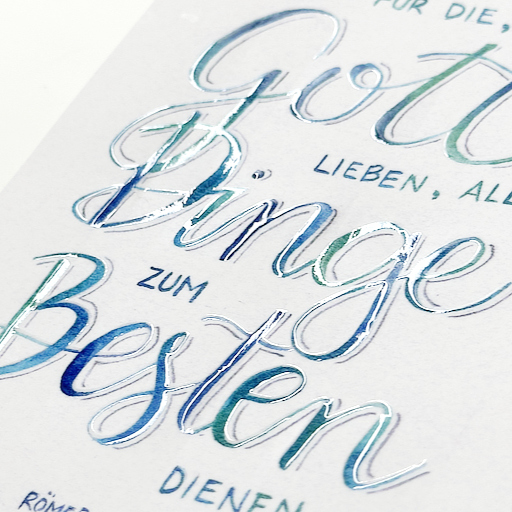 FÜR DIE,
Gott
LIEBEN, ALL
Dinge
ZUM
Besten
DIENEN
RÖMER